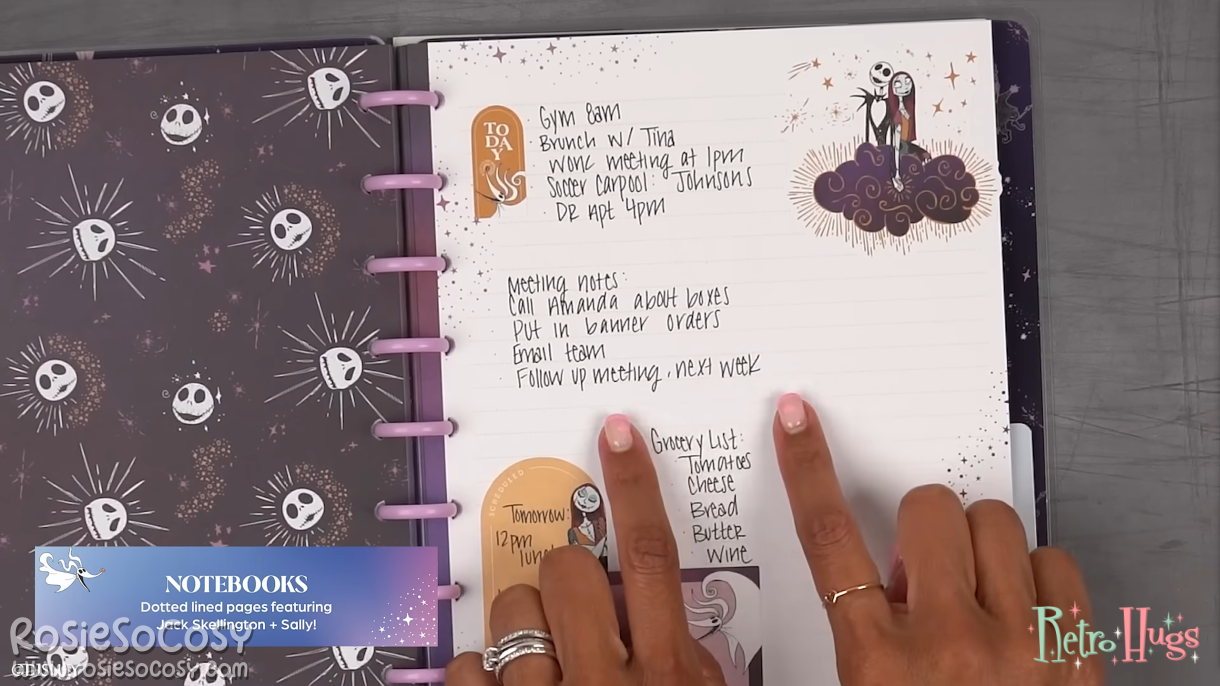 TO
DA
Y
Gym 8am
Brunch w/ Tina
work meeting at 1pm
Soccer carpool: Johnsons
DR Apt 4pm
Meeting notes:
Call Amanda about boxes
Put in banner orders
Email team
Follow up meeting, next week
Grocery List:
Tomatoes
Cheese
Bread
Butter
Wine
SCHEDULED
Tomorrow:
12pm
NOTEBOOKS
Dotted lined pages featuring
Jack Skellington + Sally!
RosieSoCosy
rosiesocosy.com
Retro Hugs